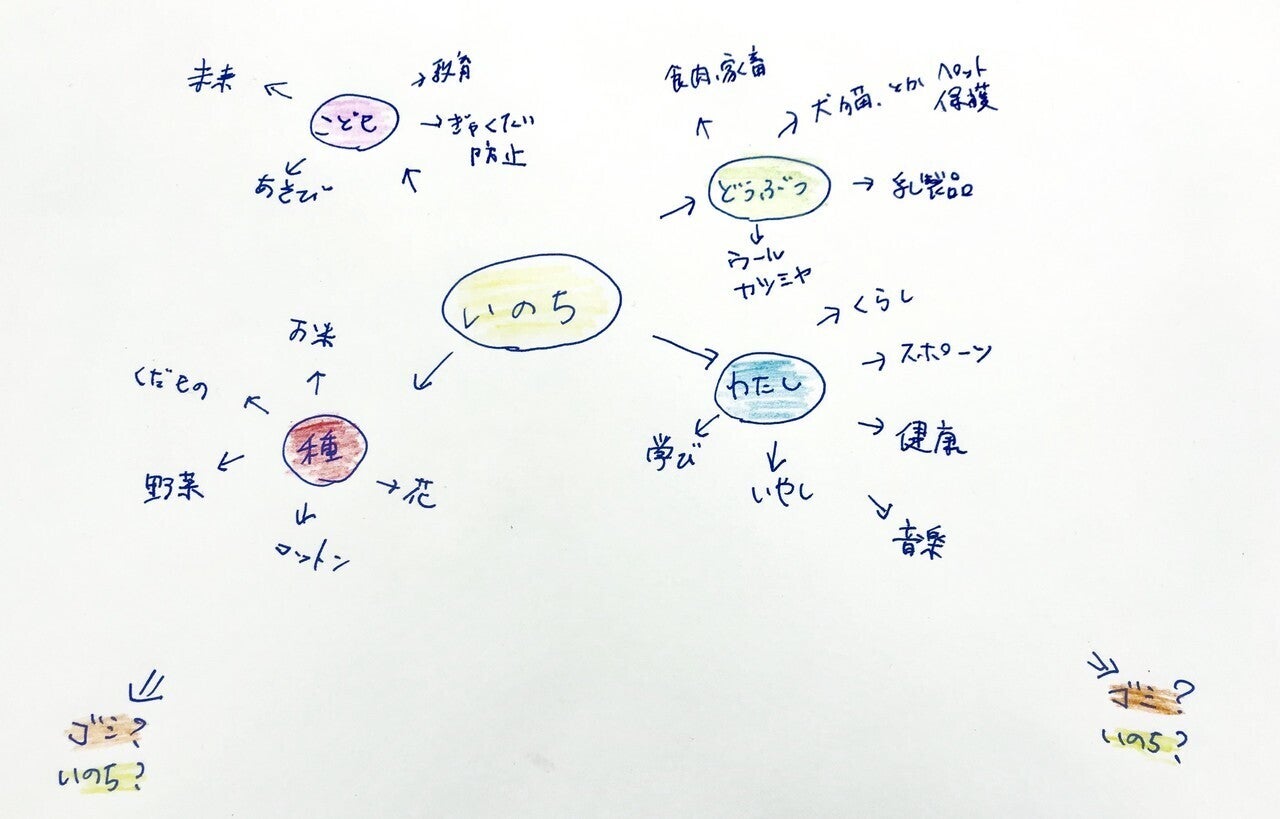 未来
教育
こども
ぎゃくたい
防止
あそび
食肉、家畜
犬猫、とか ペット
保護
どうぶつ
乳製品
ウール
カシミヤ
いのち
くらし
スポーツ
わたし
健康
学び
いやし
音楽
お米
くだもの
種
野菜
花
コットン
ゴミ?
いのち?
ゴミ?
いのち?